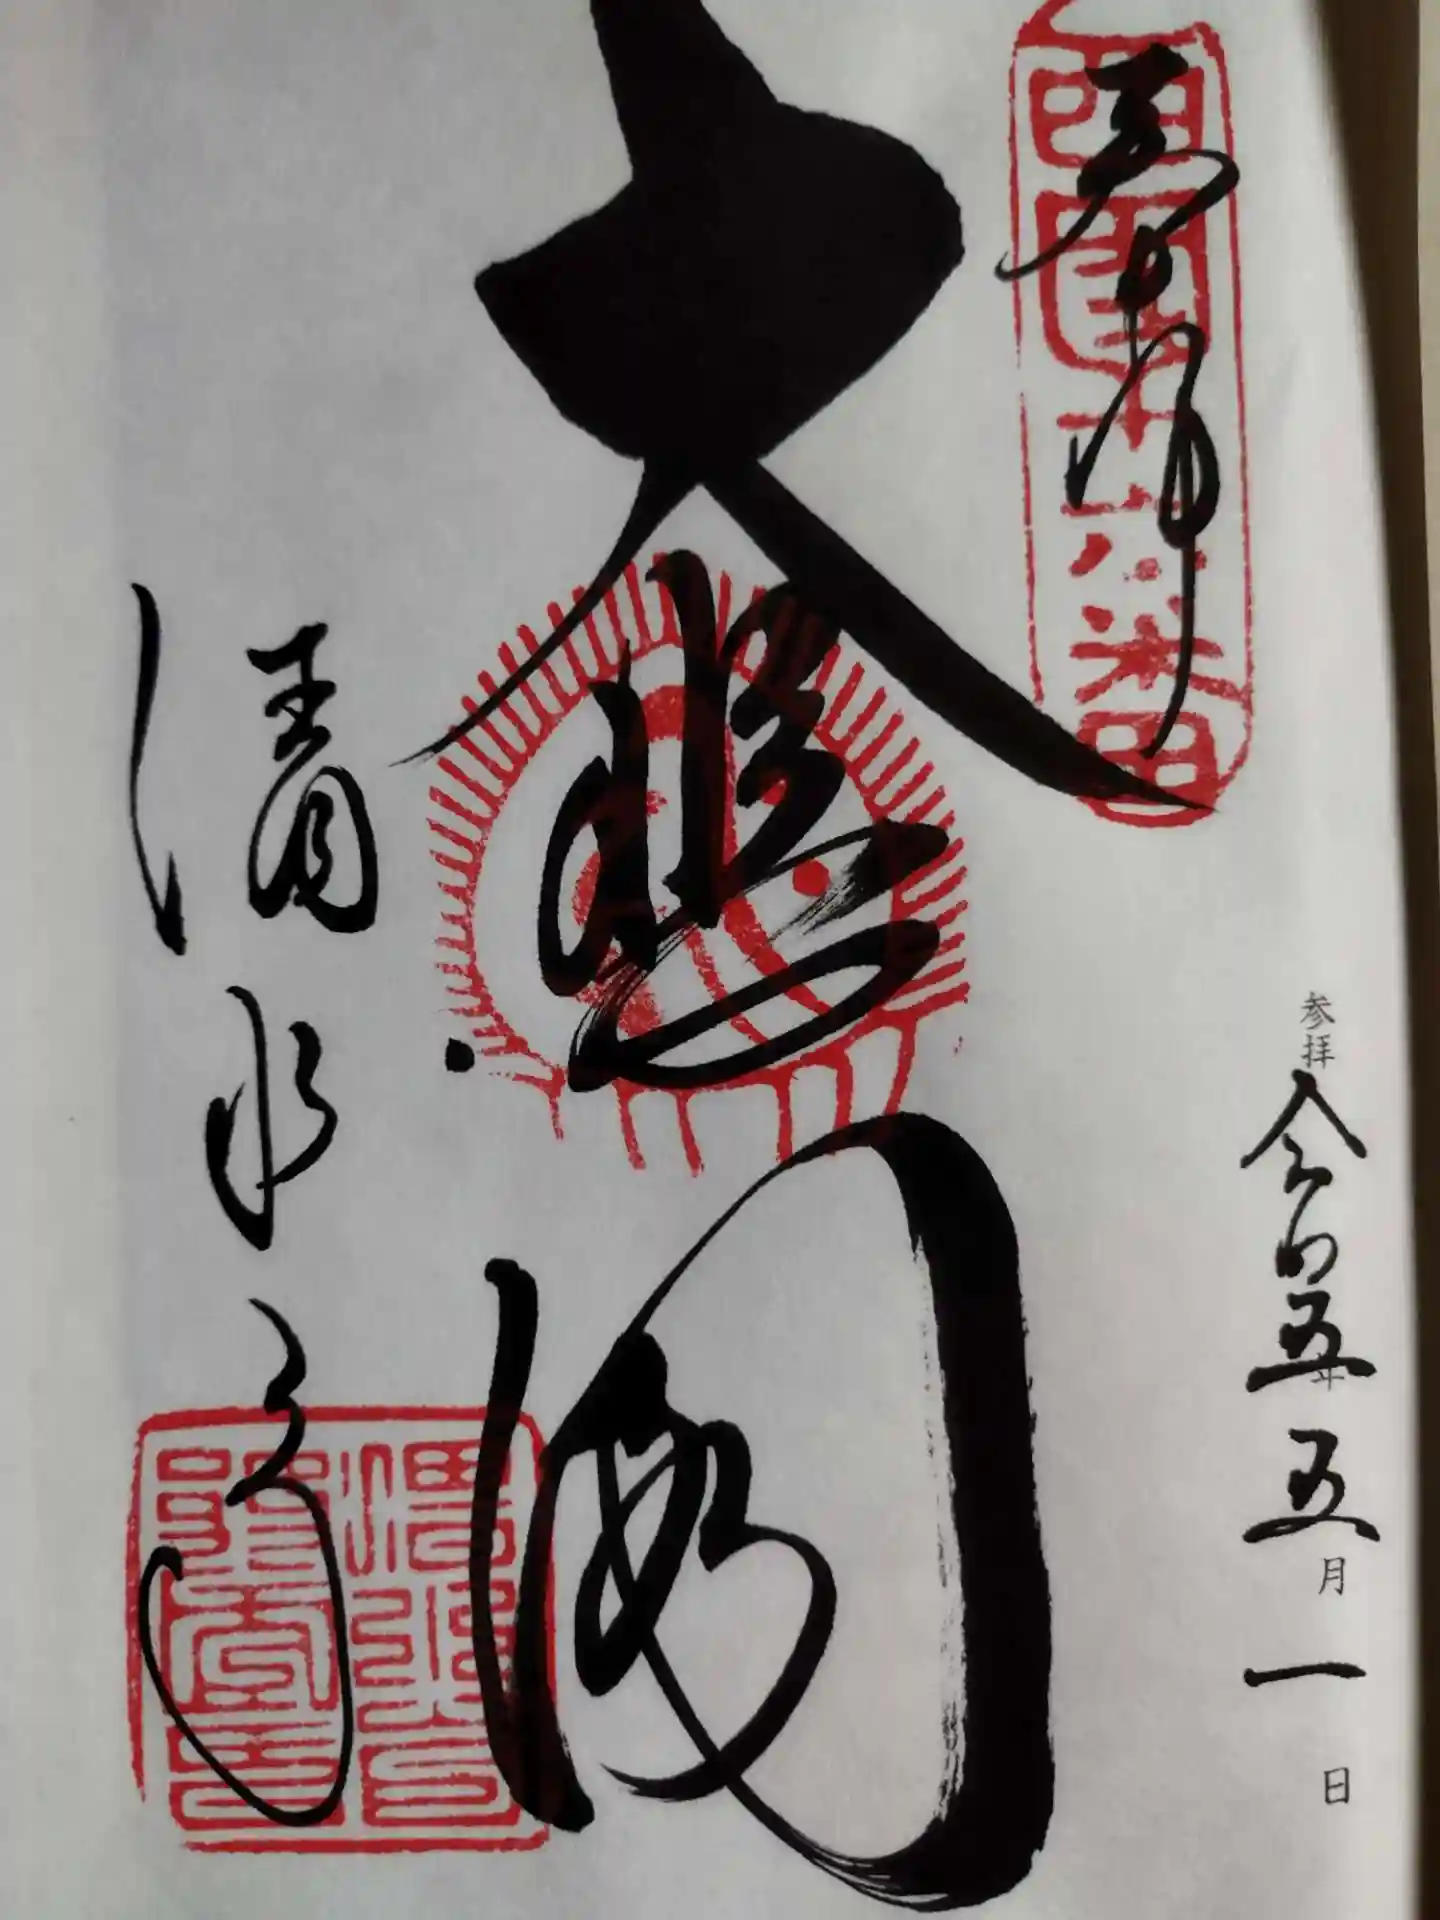 参拝 令和五年五月一日
奉拝
西国十六番
大悲閣
清水寺